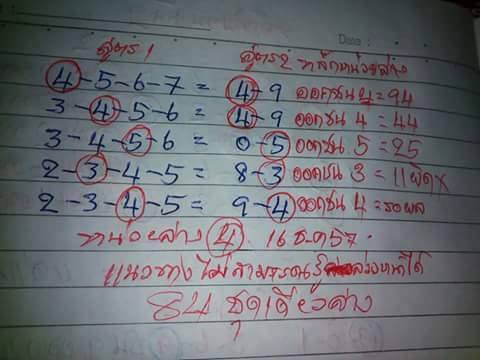 Date :
สูตร 1 สูตร 2 หลักหน่วยล่าง
4-5-6-7 = 4-9 ออกชน 4 = 94
3-4-5-6 = 4-9 ออกชน 4 = 44
3-4-5-6 = 0-5 ออกชน 5 = 25
2-3-4-5 = 8-3 ออกชน 3 = 11 ผิด x
2-3-4-5 = 9-4 ออกชน 4 = รอผล
หน่วยล่าง 4. 16 ธ.ค 57.
แนวทาง ไม่สามารถรู้ล่วงหน้าได้
84 ชุดเดียวล่าง